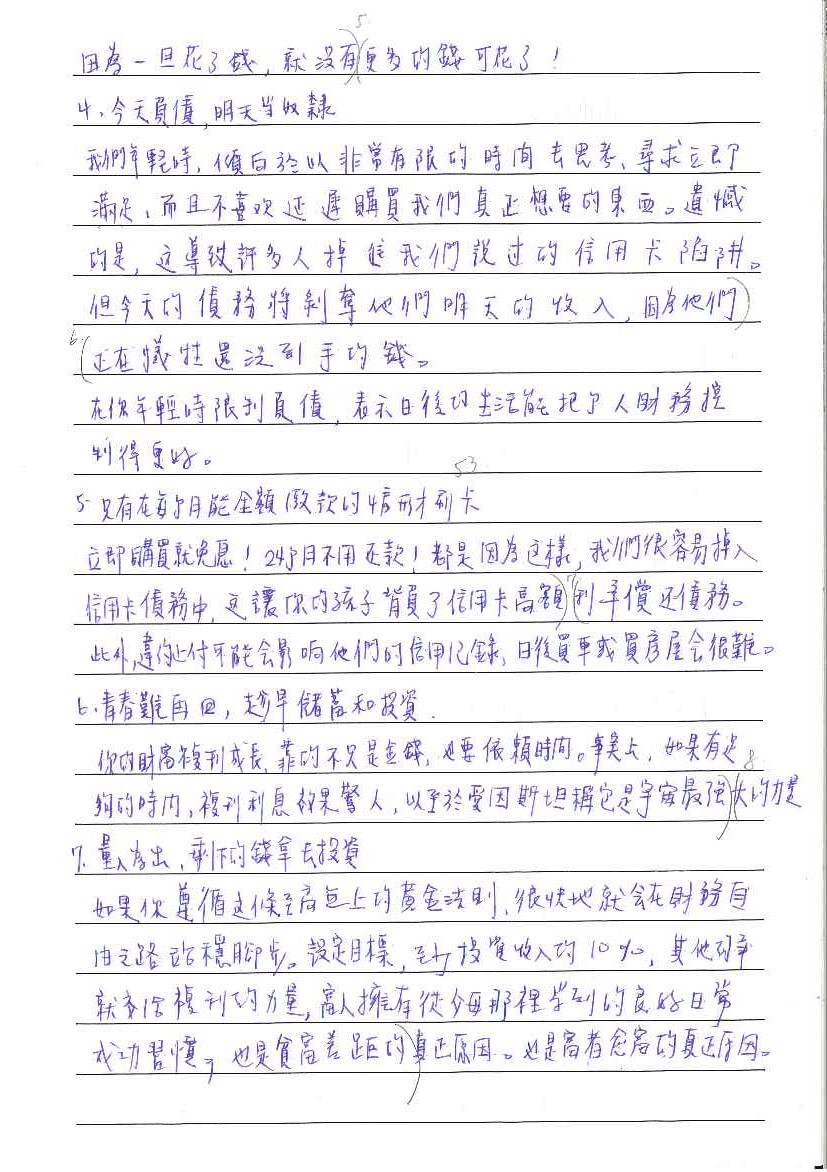 因為一旦花了錢, 就沒有更多的錢可花了!
4、今天負債, 明天当奴隸
我們年輕時, 傾向於以非常有限的時间去思考、尋求立即
滿足、而且不喜欢延遲購買我們真正想要的東西。遺憾
的是, 这導致許多人掉進我們說过的信用卡陷阱。
但今天的債務將剝奪他們明天的收入, 因為他們
正在犧牲還沒到手的錢。
在你年輕時限制負債, 表示日後的生活能把个人財務控
制得更好。
5 只有在每个月能全額繳款的情形才刷卡
立即購買就免息! 24个月不用还款! 都是因為这樣, 我們很容易掉入
信用卡債務中, 这讓你的孩子背負了信用卡高額利率償还債務。
此外, 違約止付可能会影响他們的信用记錄, 日後買車或買房屋会很難。
6、青春難再回, 趁早儲蓄和投資.
你的財富複利成長, 靠的不只是金錢, 也要依賴時间。事实上, 如果有足
夠的時间, 複利利息效果驚人, 以至於愛因斯坦稱它是宇宙最強大的力量
7、量入為出, 剩下的錢拿去投資
如果你遵循这條至高無上的黃金法則, 很快地就会在財務自
由之路站穩腳步。設定目標, 至少投資收入的10%, 其他的事
就交給複利的力量, 富人擁有從父母那裡学到的良好日常
成功習慣, 也是貧富差距的真正原因。也是富者愈富的真正原因。
5
6
53
7
8